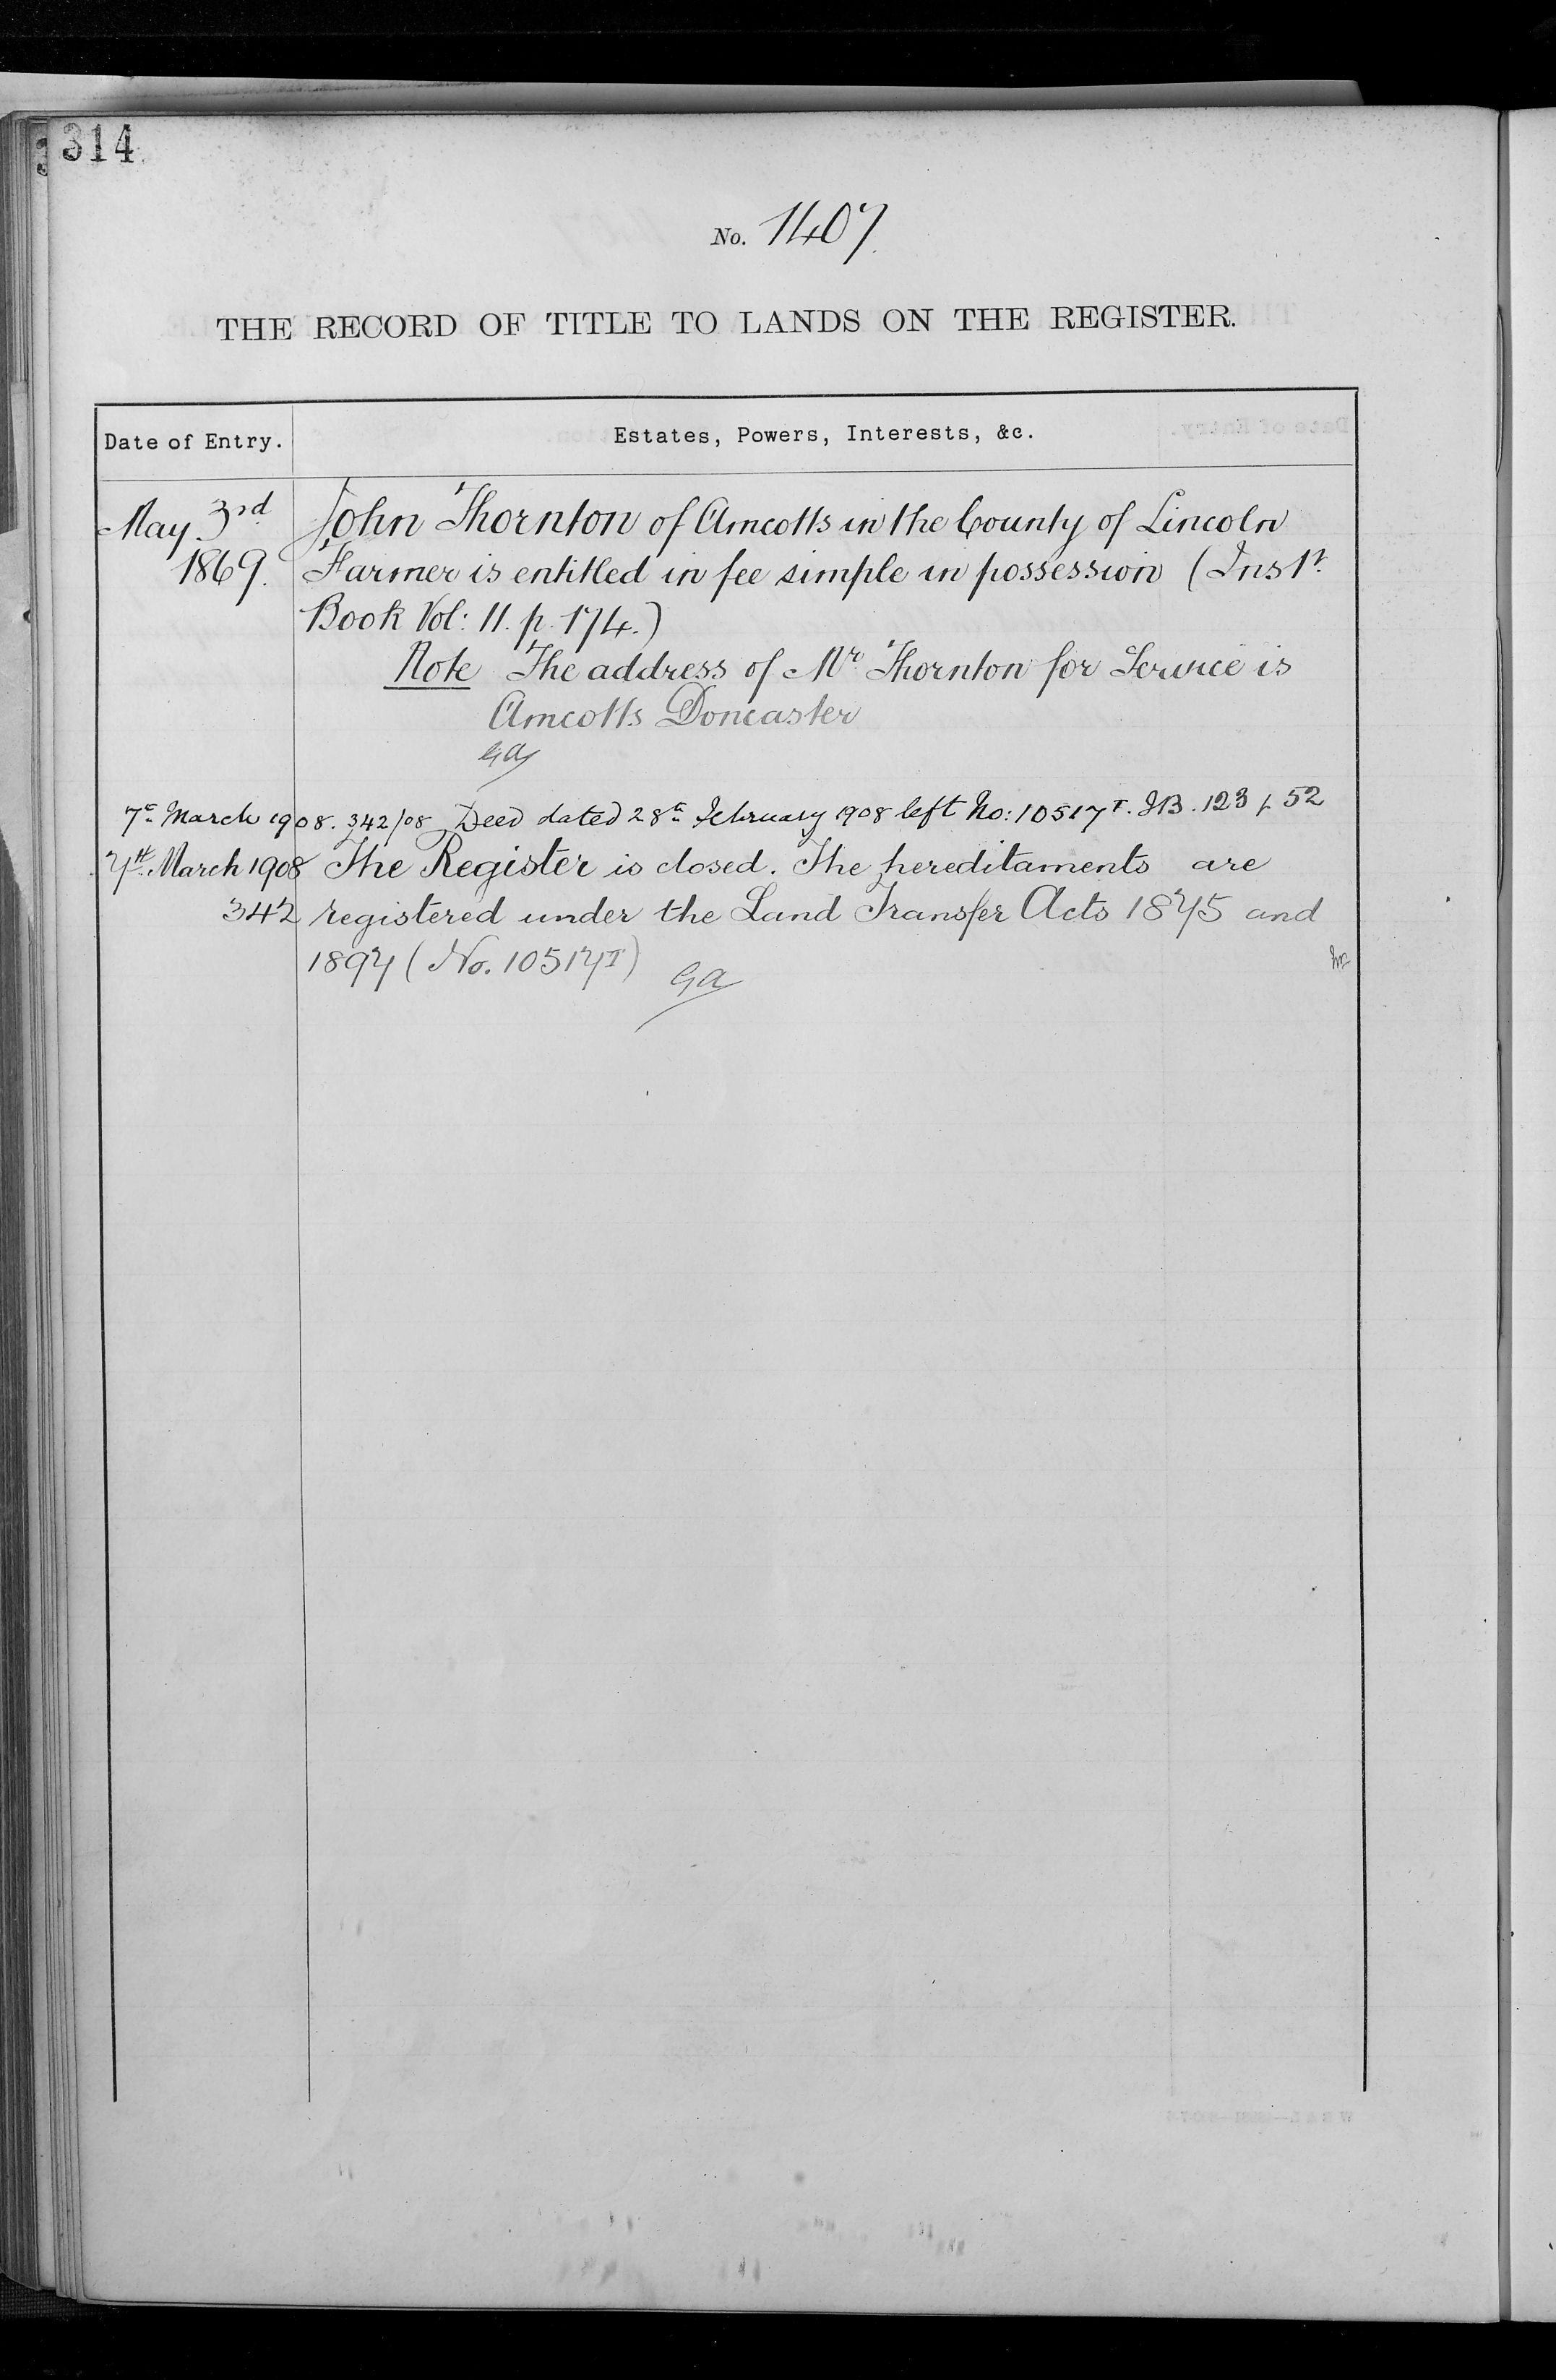 314
No. 1407.
THE RECORD OF TITLE TO LANDS ON THE REGISTER.
Date of Entry. Estates, Powers, Interests, &c.
May 3rd John Thornton of Amcotts in the County of Lincoln
1869. Farmer is entitled in fee simple in possession (Inst.
Book Vol: 11. p. 174.)
Note The address of Mr. Thornton for Service is
Amcotts Doncaster
GA
7th March 1908. 342/08 Deed dated 28th February 1908 left No: 10517 I. IB. 123 p. 52
7th March 1908 The Register is closed. The hereditaments are
342 registered under the Land Transfer Acts 1875 and
1897 (No. 10517 I) GA